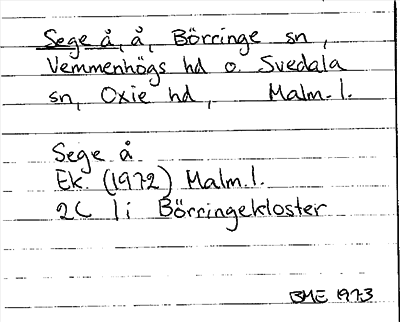 Sege å, å, Börringe sn,
Vemmenhögs hd o. Svedala
sn, Oxie hd, Malm. l.
Sege å
Ek. (1972) Malm. l.
2C 1i Börringekloster
BME 1973